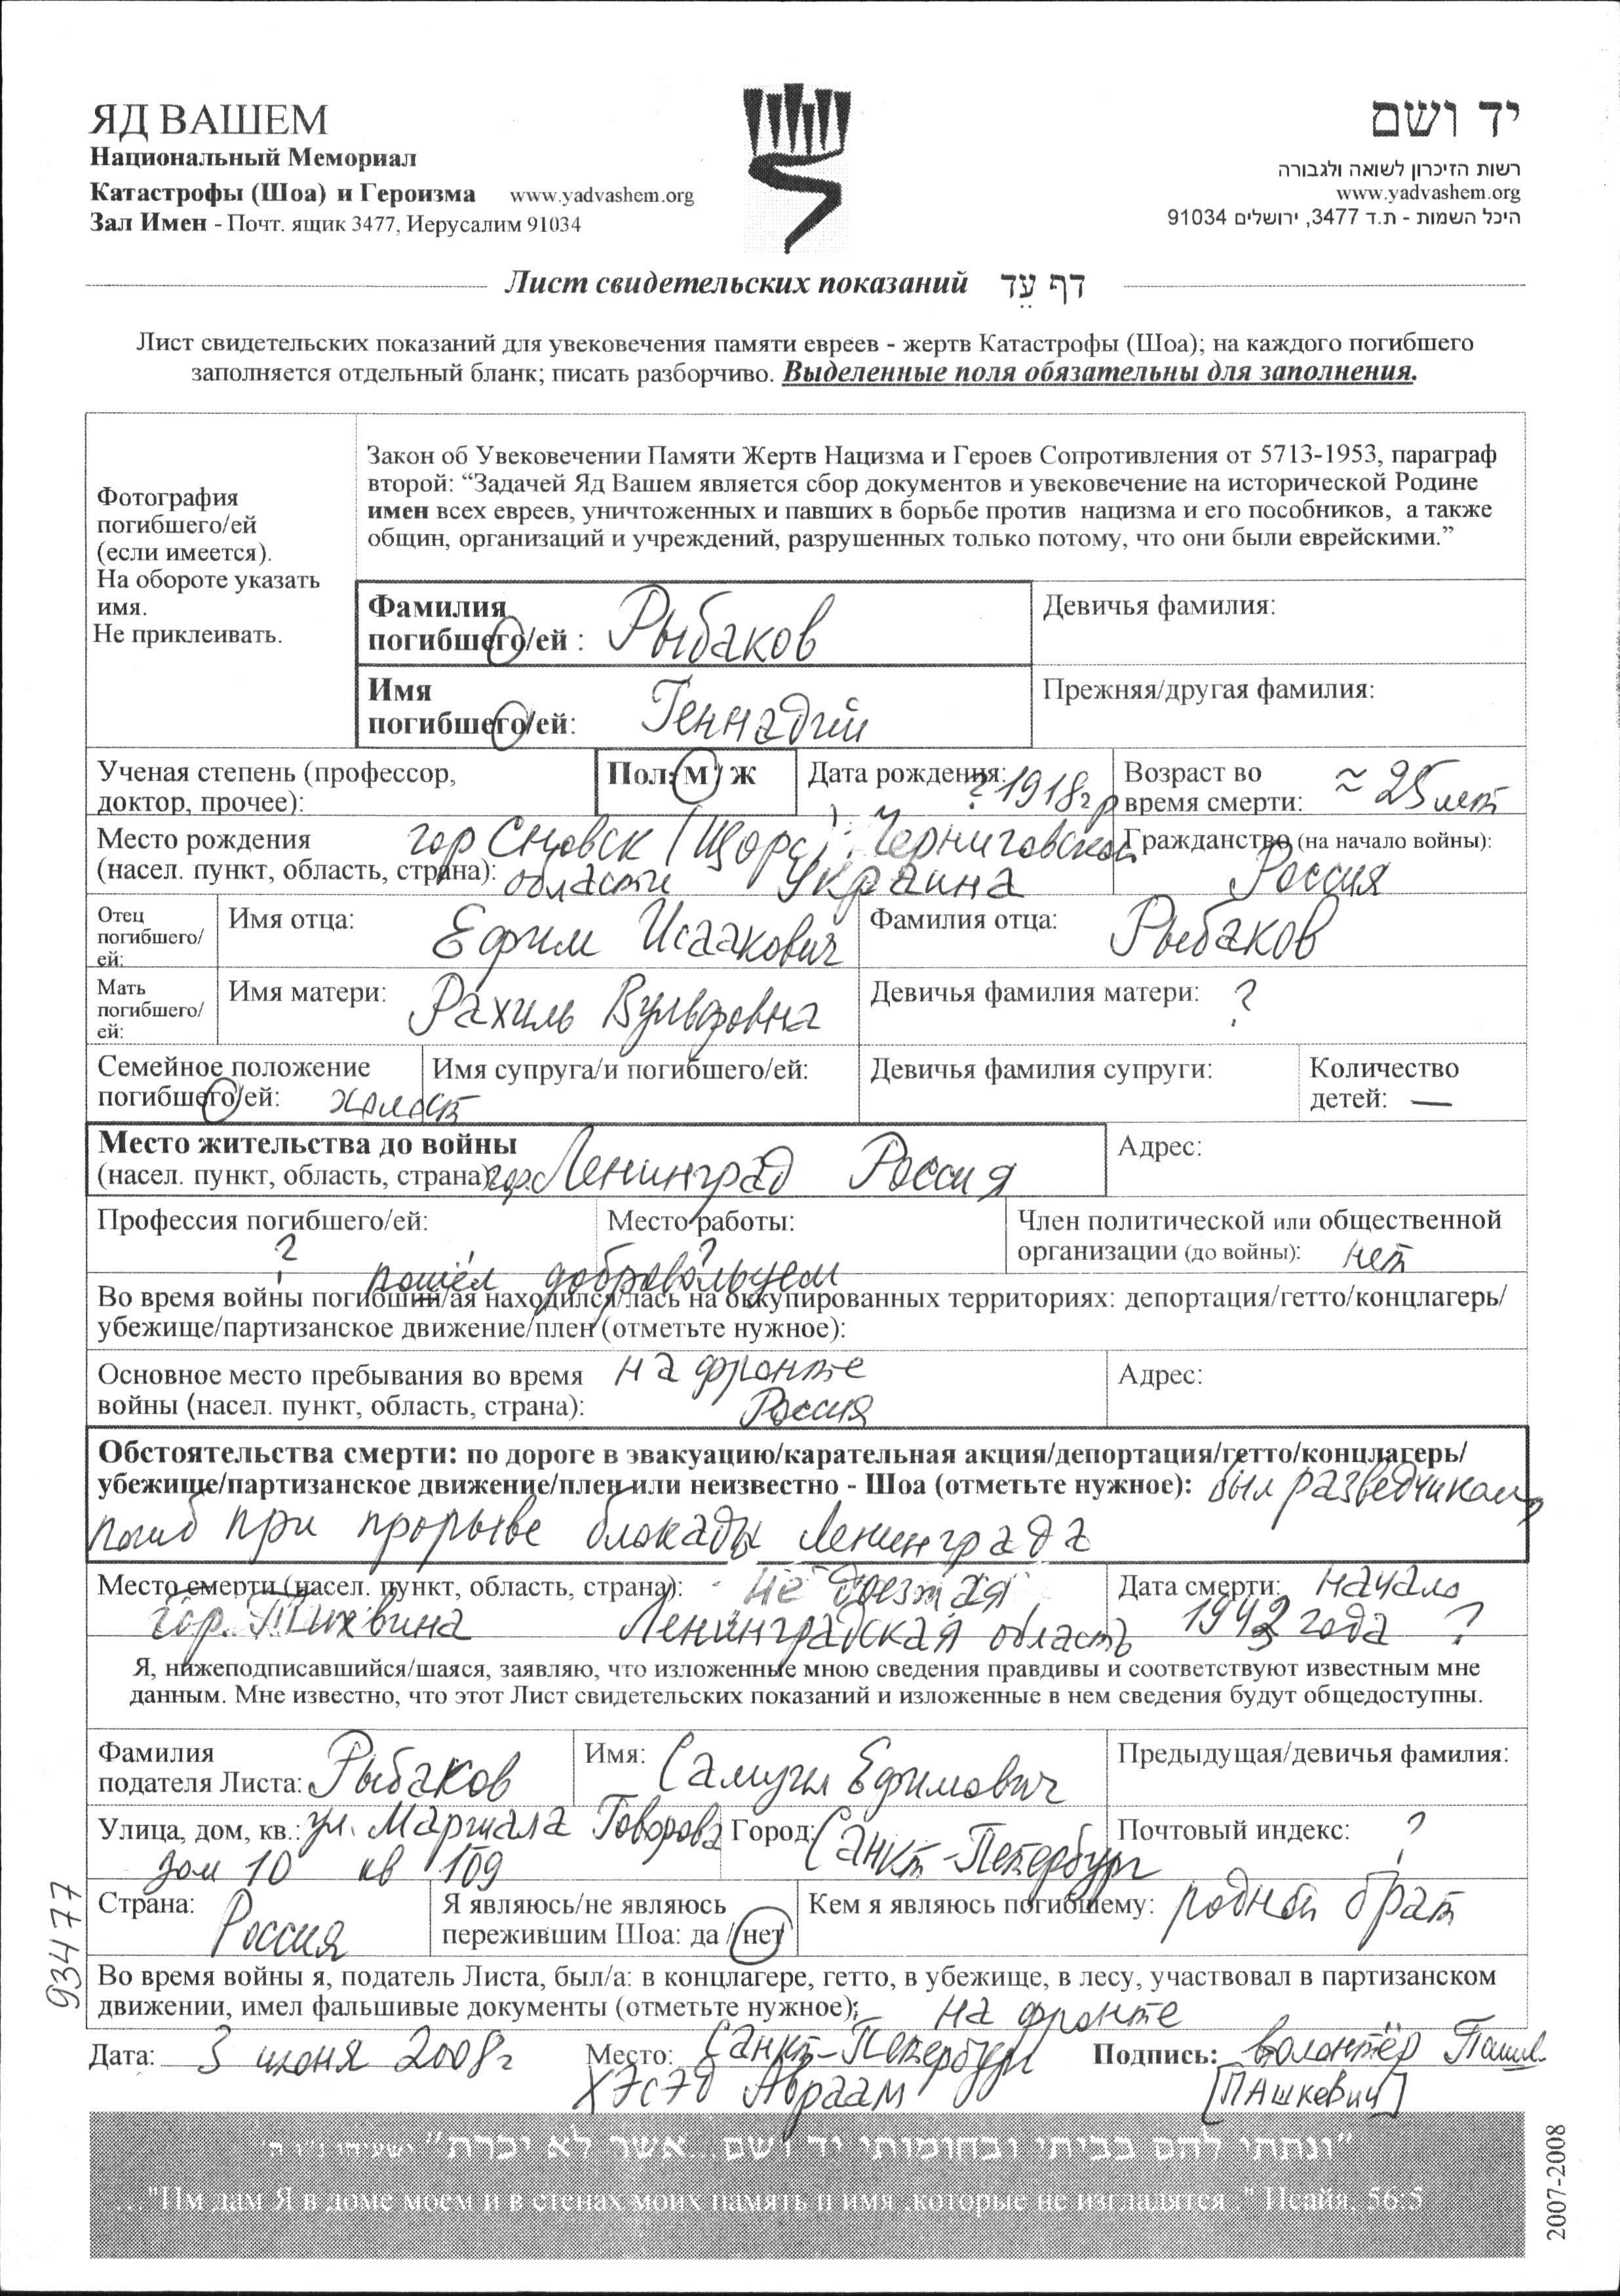 ЯД ВАШЕМ
Национальный Мемориал
Катастрофы (Шоа) и Героизма www.yadvashem.org
Зал Имен - Почт. ящик 3477, Иерусалим 91034
יד ושם
רשות הזיכרון לשואה ולגבורה
www.yadvashem.org
היכל השמות - ת.ד 3477, ירושלים 91034
Лист свидетельских показаний דף עֵד
Лист свидетельских показаний для увековечения памяти евреев - жертв Катастрофы (Шоа); на каждого погибшего
заполняется отдельный бланк; писать разборчиво. Выделенные поля обязательны для заполнения.
Фотография
погибшего/ей
(если имеется).
На обороте указать
имя.
Не приклеивать.
Закон об Увековечении Памяти Жертв Нацизма и Героев Сопротивления от 5713-1953, параграф
второй: “Задачей Яд Вашем является сбор документов и увековечение на исторической Родине
имен всех евреев, уничтоженных и павших в борьбе против нацизма и его пособников, а также
общин, организаций и учреждений, разрушенных только потому, что они были еврейскими.”
Фамилия
погибшего/ей : Рыбаков
Девичья фамилия:
Имя
погибшего/ей: Геннадий
Прежняя/другая фамилия:
Ученая степень (профессор,
доктор, прочее):
Пол: м / ж
Дата рождения: ? 1918г р
Возраст во
время смерти: ≈ 25 лет
Место рождения гор Сновск (Щорс) Черниговской
(насел. пункт, область, страна): области Украина
Гражданство (на начало войны):
Россия
Отец
погибшего/
ей:
Имя отца: Ефим Исаакович
Фамилия отца: Рыбаков
Мать
погибшего/
ей:
Имя матери: Рахиль Вульфовна
Девичья фамилия матери: ?
Семейное положение
погибшего/ей: холост
Имя супруга/и погибшего/ей:
Девичья фамилия супруги:
Количество
детей: —
Место жительства до войны
(насел. пункт, область, страна): гор. Ленинград Россия
Адрес:
Профессия погибшего/ей:
?
Место работы:
?
Член политической или общественной
организации (до войны): нет
пошёл добровольцем
Во время войны погибший/ая находился/лась на оккупированных территориях: депортация/гетто/концлагерь/
убежище/партизанское движение/плен (отметьте нужное):
Основное место пребывания во время на фронте
войны (насел. пункт, область, страна): Россия
Адрес:
Обстоятельства смерти: по дороге в эвакуацию/карательная акция/депортация/гетто/концлагерь/
убежище/партизанское движение/плен или неизвестно - Шоа (отметьте нужное): был разведчиком,
погиб при прорыве блокады Ленинграда
Место смерти (насел. пункт, область, страна): не доезжая
гор. Тихвина Ленинградская область
Дата смерти: начало
1943 года ?
Я, нижеподписавшийся/шаяся, заявляю, что изложенные мною сведения правдивы и соответствуют известным мне
данным. Мне известно, что этот Лист свидетельских показаний и изложенные в нем сведения будут общедоступны.
Фамилия
подателя Листа: Рыбаков
Имя: Самуил Ефимович
Предыдущая/девичья фамилия:
Улица, дом, кв.: ул. Маршала Говорова
дом 10 кв 109
Город: Санкт-Петербург
Почтовый индекс: ?
Страна:
Россия
Я являюсь/не являюсь
пережившим Шоа: да / нет
Кем я являюсь погибшему: родной брат
Во время войны я, податель Листа, был/а: в концлагере, гетто, в убежище, в лесу, участвовал в партизанском
движении, имел фальшивые документы (отметьте нужное): на фронте
Дата: 3 июня 2008г Место: Санкт-Петербург Подпись: волонтёр
Хэсэд Авраам [Пашкевич]
93477
"ונתתי להם בביתי ובחומותי יד ושם...אשר לא יכרת" ישעיהו נ"ו ה'
..."Им дам Я в доме моем и в стенах моих память и имя ,которые не изгладятся ." Исайя, 56:5
2007-2008